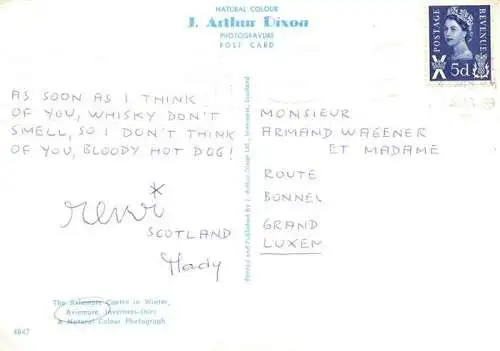 NATURAL COLOUR
J. Arthur Dixon
PHOTOGRAVURE
POST CARD
POSTAGE
REVENUE
5d
AS SOON AS I THINK
OF YOU, WHISKY DON'T
SMELL, SO I DON'T THINK
OF YOU, BLOODY HOT DOG!
SCOTLAND
Mady
MONSIEUR
ARMAND WAGENER
ET MADAME
ROUTE
BONNEL
GRAND
LUXEN
Printed and Published by J. Arthur Dixon Ltd., Inverness, Scotland
The Aviemore Centre in Winter,
Aviemore, Inverness-shire
A Natural Colour Photograph